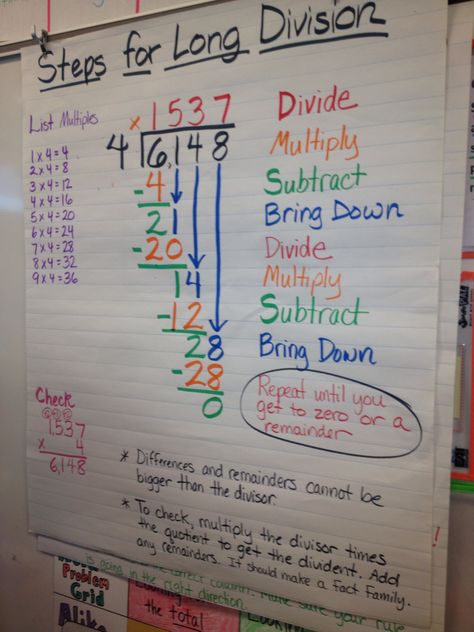 Steps for Long Division
List Multiples
1 x 4 = 4
2 x 4 = 8
3 x 4 = 12
4 x 4 = 16
5 x 4 = 20
6 x 4 = 24
7 x 4 = 28
8 x 4 = 32
9 x 4 = 36
x 1537
4 6,148
- 4
21
- 20
14
- 12
28
- 28
0
Divide
Multiply
Subtract
Bring Down
Divide
Multiply
Subtract
Bring Down
Repeat until you
get to zero or a
remainder
Check
1,537
x 4
6,148
* Differences and remainders cannot be
bigger than the divisor.
* To check, multiply the divisor times
the quotient to get the divident. Add
any remainders. It should make a Fact Family.
is going in the right direction.
Problem
Grid
Alike
the total